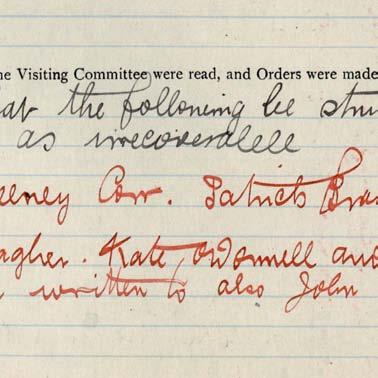 he Visiting Committee were read, and Orders were made
at the following be stru
as irrecoverable
eeney Corr. Patrick Bra
agher. Kate O'Donnell and
written to also John